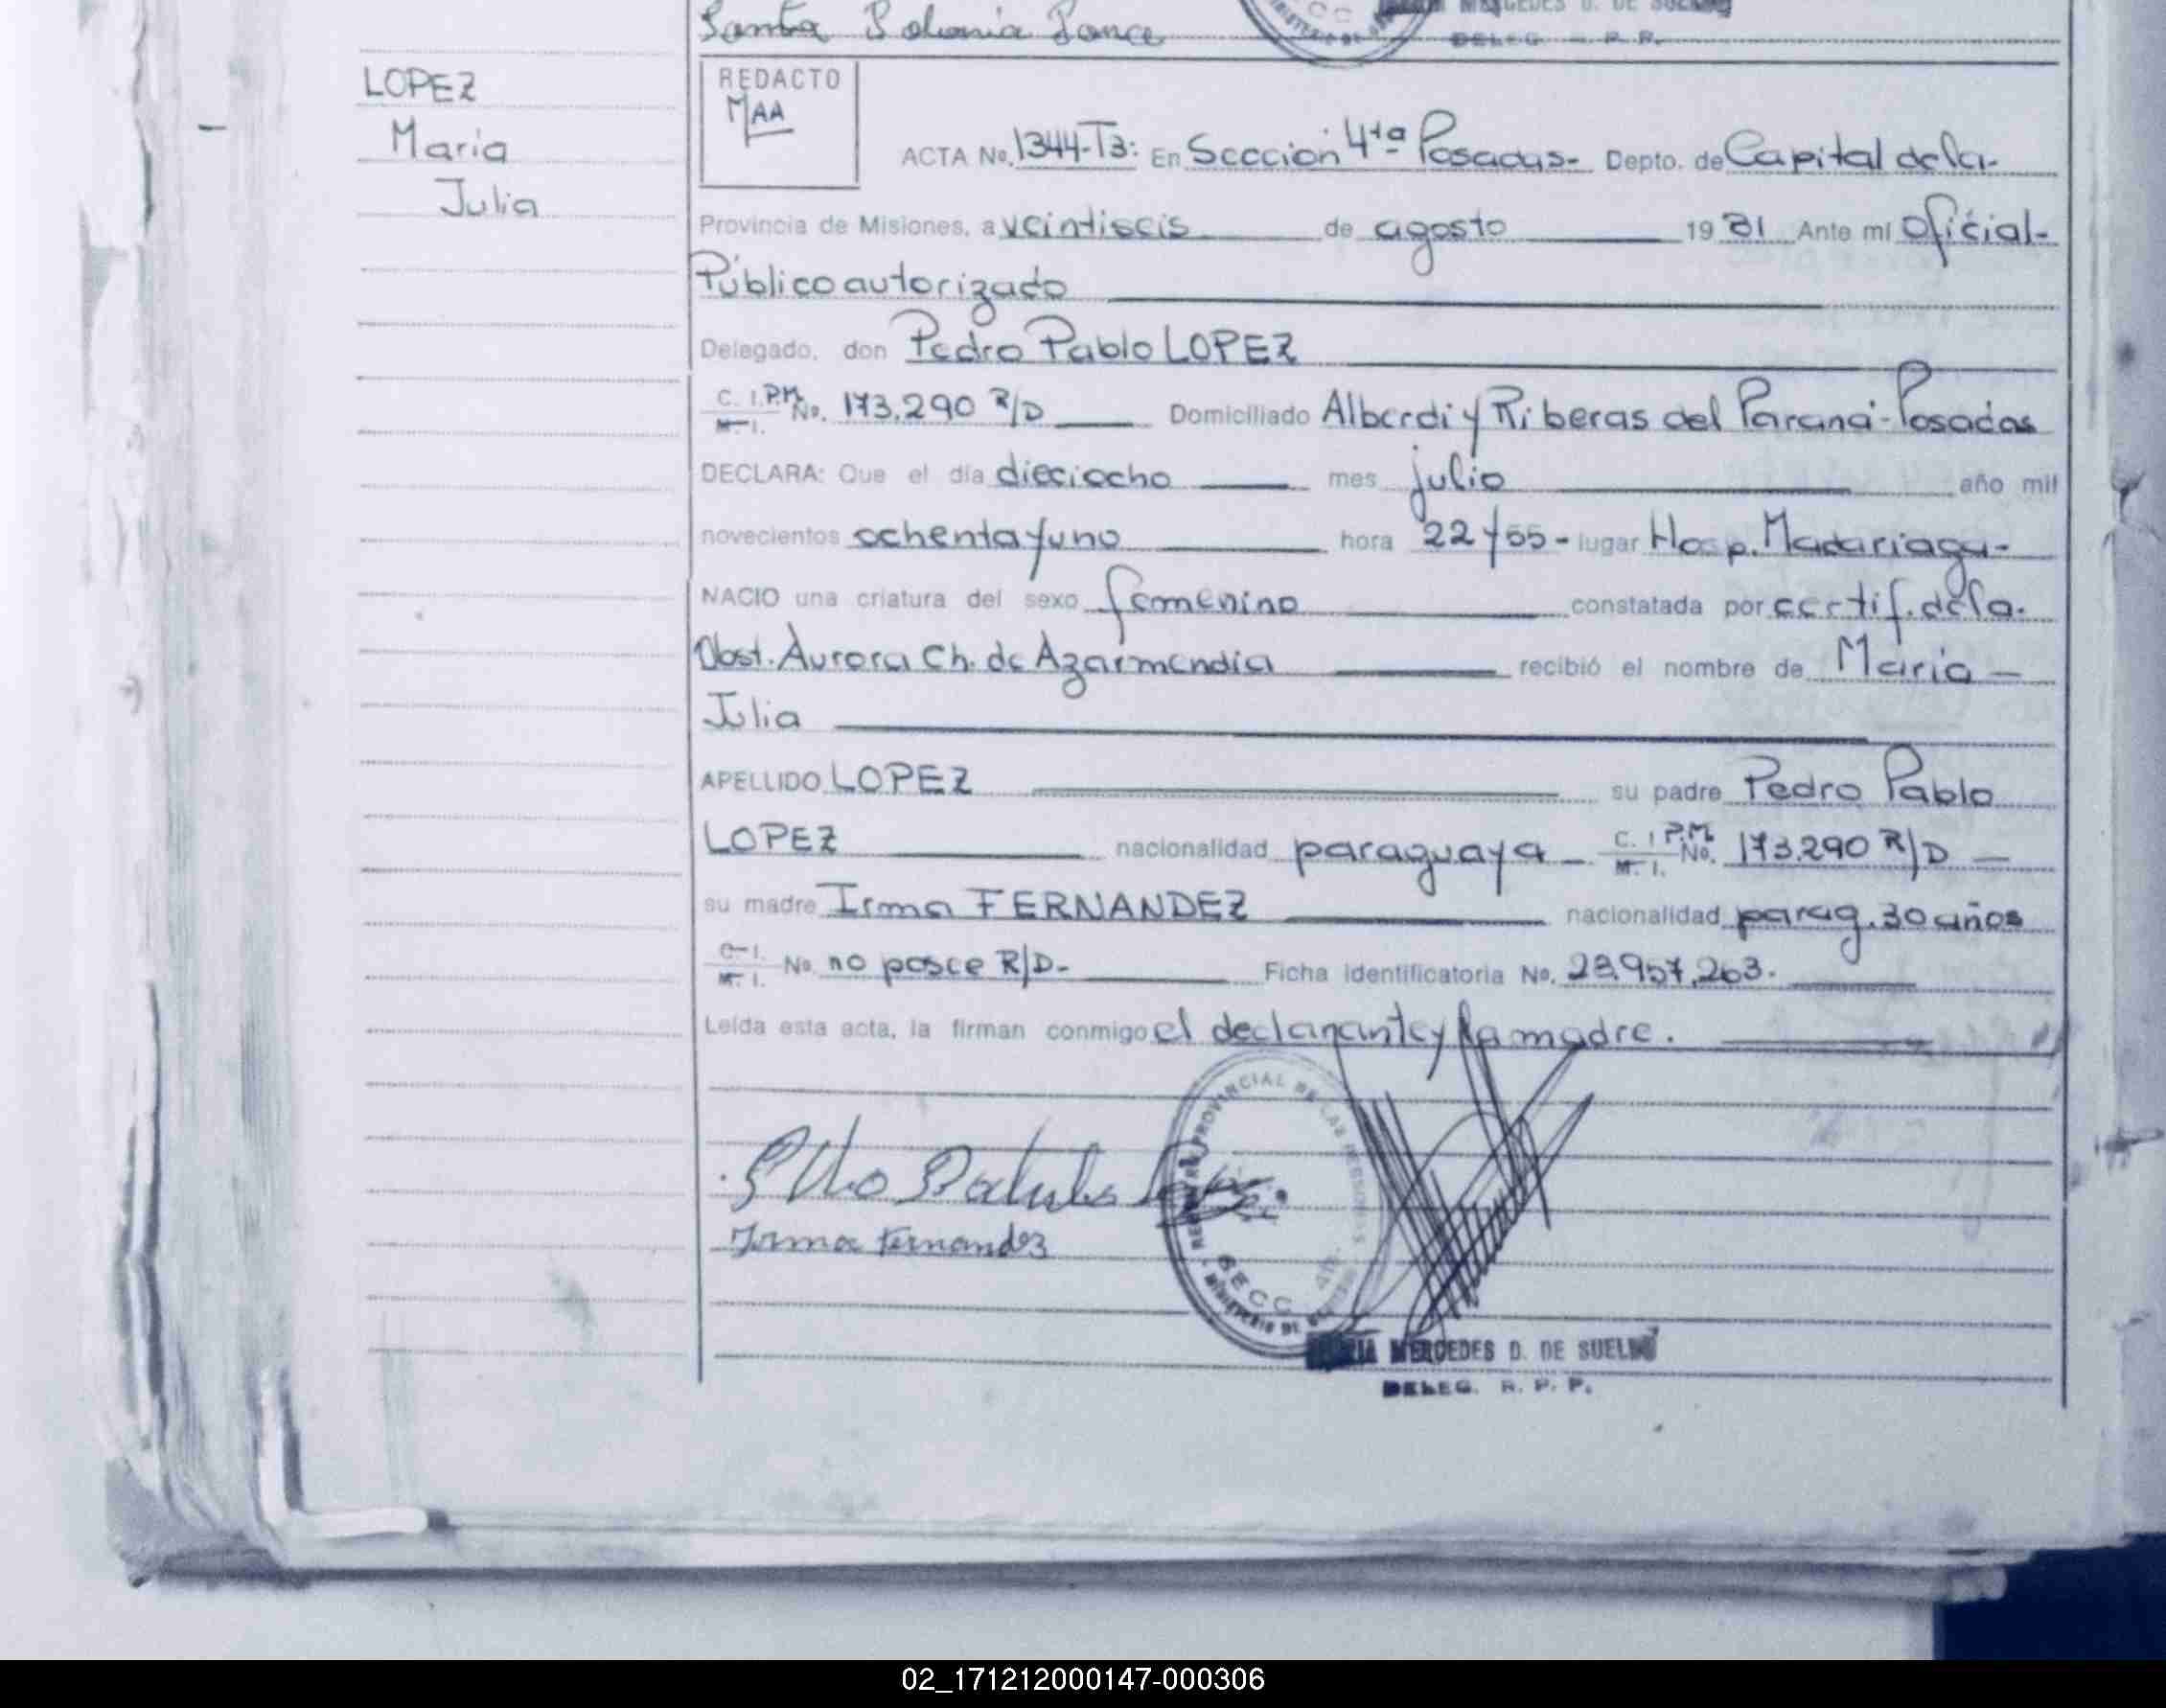 Santa Ponce
MERCEDES D. DE SUELDO
DELEG. R. P.
LOPEZ
Maria
Julia
REDACTO
MAA
ACTA No. 1344-T3: En Sección 4ta Posadas- Depto. de Capital de la-
Provincia de Misiones, a veintiseis de agosto 19 81 Ante mi Oficial-
Público autorizado
Delegado, don Pedro Pablo LOPEZ
C. I. P.M. M. I. No. 173.290 R/D Domiciliado Alberdi y Riberas del Paraná-Posadas
DECLARA: Que el día dieciocho mes julio año mil
novecientos ochenta y uno hora 22 y 55- lugar Hosp. Madariaga-
NACIO una criatura del sexo femenino constatada por certif. de la.
Obst. Aurora Ch. de Azarmendia recibió el nombre de Maria-
Julia
APELLIDO LOPEZ su padre Pedro Pablo
LOPEZ nacionalidad paraguaya- C. I. P.M. M. I. No. 173.290 R/D
su madre Irma FERNANDEZ nacionalidad parag. 30 años
C. I. M. I. No no posee R/D- Ficha identificatoria No. 28.957.263.
Leída esta acta, la firman conmigo el declarante y la madre.
Irma Fernandez
PROVINCIAL DE LAS PERSONAS
SECC 4ta.
MINISTERIO DE GOBIERNO
MARIA MERCEDES D. DE SUELDO
DELEG. R. P. P.
02_171212000147-000306